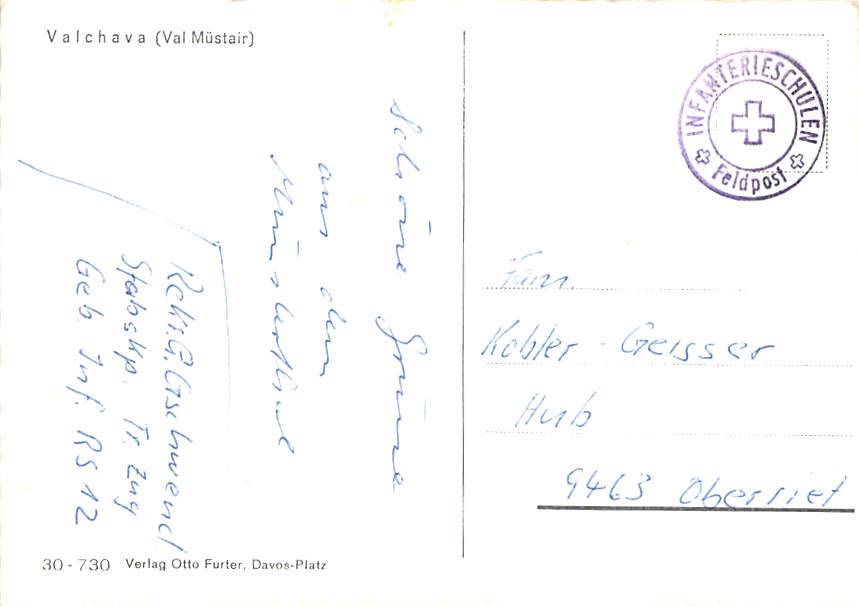 Valchava (Val Müstair)
Schöne Grüsse
aus dem
Münsterthal
Rekr. G. Gschwend
Stabskp. Tr. Zug
Geb. Inf. RS 12
30-730 Verlag Otto Furter, Davos-Platz
INFANTERIESCHULEN
Feldpost
Fam.
Kobler-Geisser
Hub
9463 Oberriet